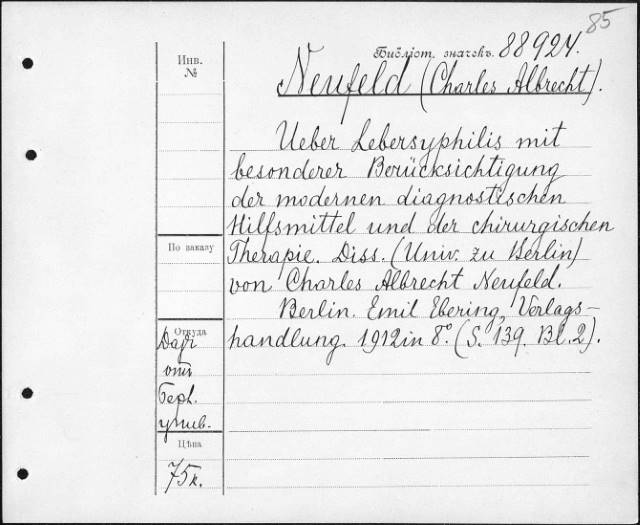 85
Инв.
№
Библіот. значекъ. 88924.
Neufeld (Charles Albrecht).
Ueber Lebersyphilis mit
besonderer Berücksichtigung
der modernen diagnostischen
Hilfsmittel und der chirurgischen
Therapie. Diss. (Univ. zu Berlin)
von Charles Albrecht Neufeld.
Berlin. Emil Ebering, Verlags-
handlung. 1912 in 8°. (S. 139. Bl. 2).
По заказу
Откуда
Даръ
отъ
Берл.
унив.
Цѣна
75к.